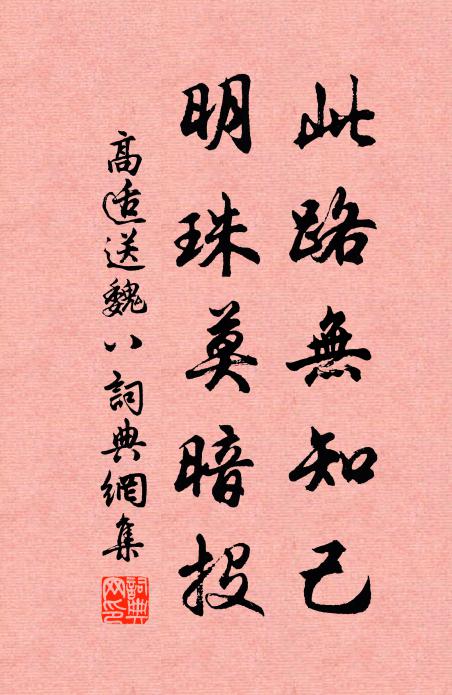 此路無知己
明珠莫暗投
高适送魏八詞典網集
詞典
網印